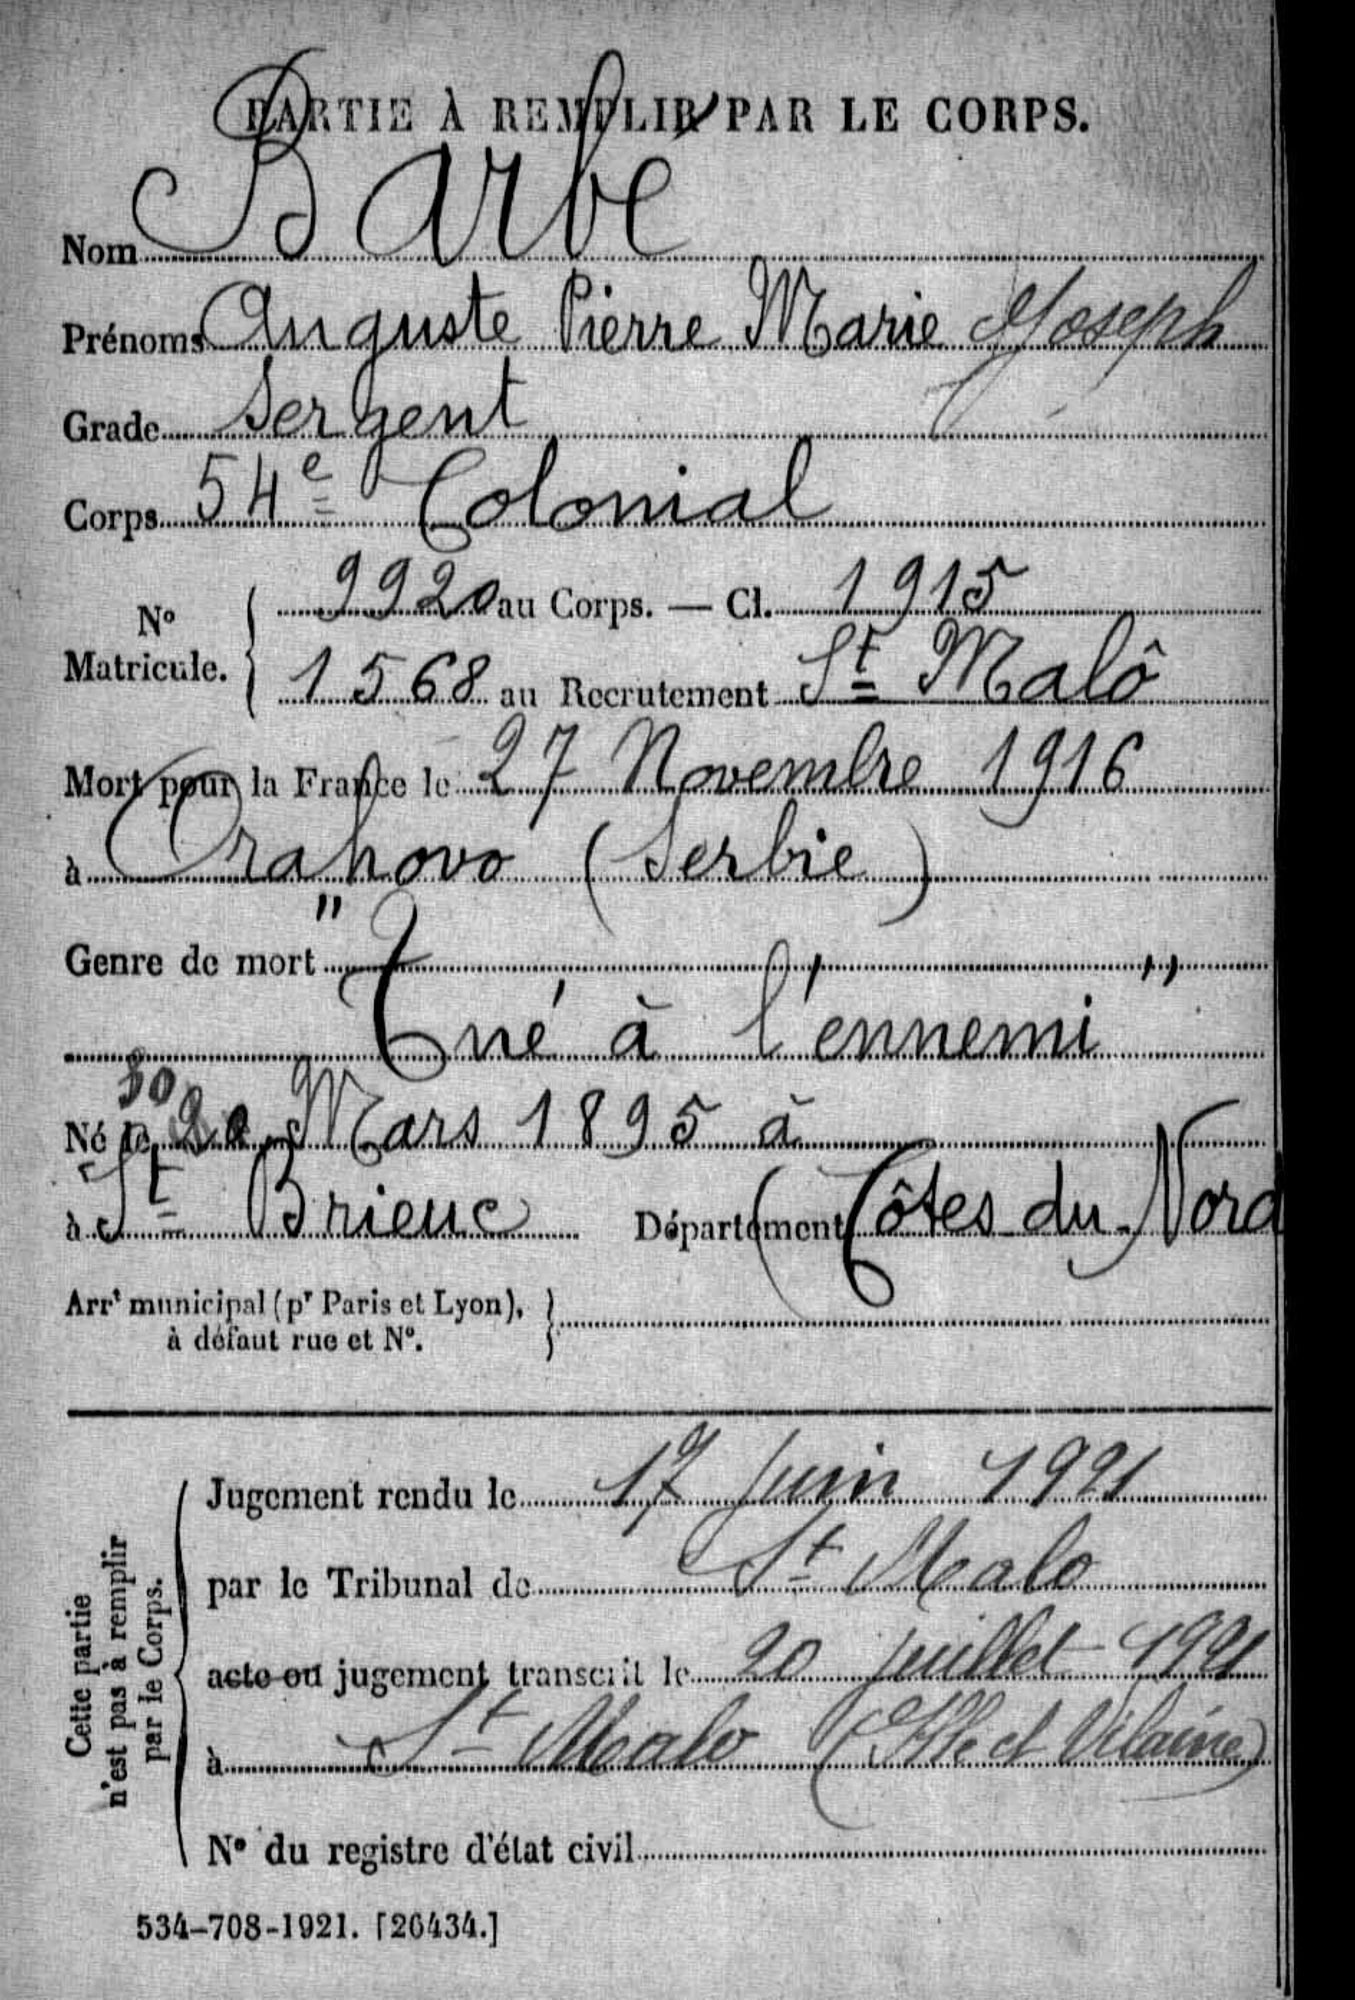 PARTIE À REMPLIR PAR LE CORPS.
Nom Barbé
Prénoms Auguste Pierre Marie Joseph
Grade Sergent
Corps 54e Colonial
No Matricule. { 9920 au Corps. — Cl. 1915
1568 au Recrutement St Malô
Mort pour la France le 27 Novembre 1916
à Orahovo (Serbie)
Genre de mort "
Tué à l'ennemi "
30
Né le 20 Mars 1895 à
à St Brieuc Département (Côtes du Nord
Arrt municipal (pr Paris et Lyon), }
à défaut rue et No.
Cette partie
n'est pas à remplir
par le Corps.
Jugement rendu le 17 Juin 1921
par le Tribunal de St Malo
acte ou jugement transcrit le 20 juillet 1921
à St Malo (Ille et Vilaine)
No du registre d'état civil
534-708-1921. [26434.]